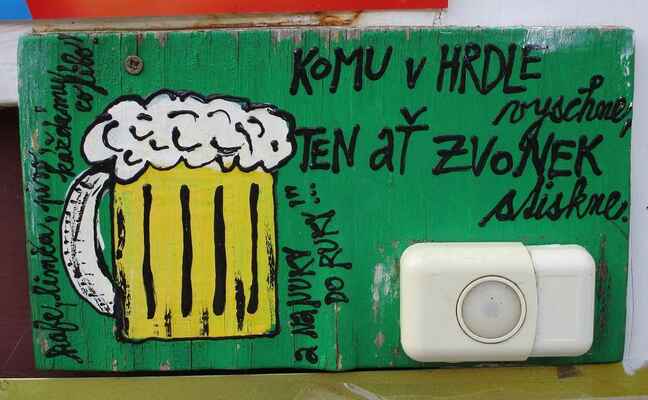 kafe, limča, pivo
každému, co libo!
KOMU v HRDLE
vyschne,
TEN AŤ ZVONEK
stiskne.
a NANUKY
DO RUKY...